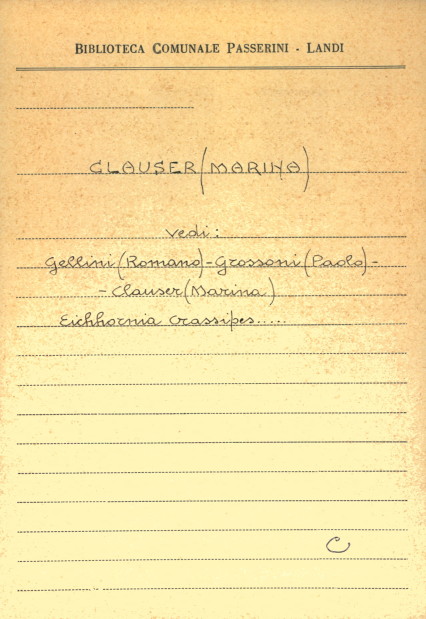 BIBLIOTECA COMUNALE PASSERINI - LANDI
CLAUSER (MARINA)
Vedi:
Gellini (Romano) - Grossoni (Paolo) -
- Clauser (Marina)
Eichhornia crassipes.....
C